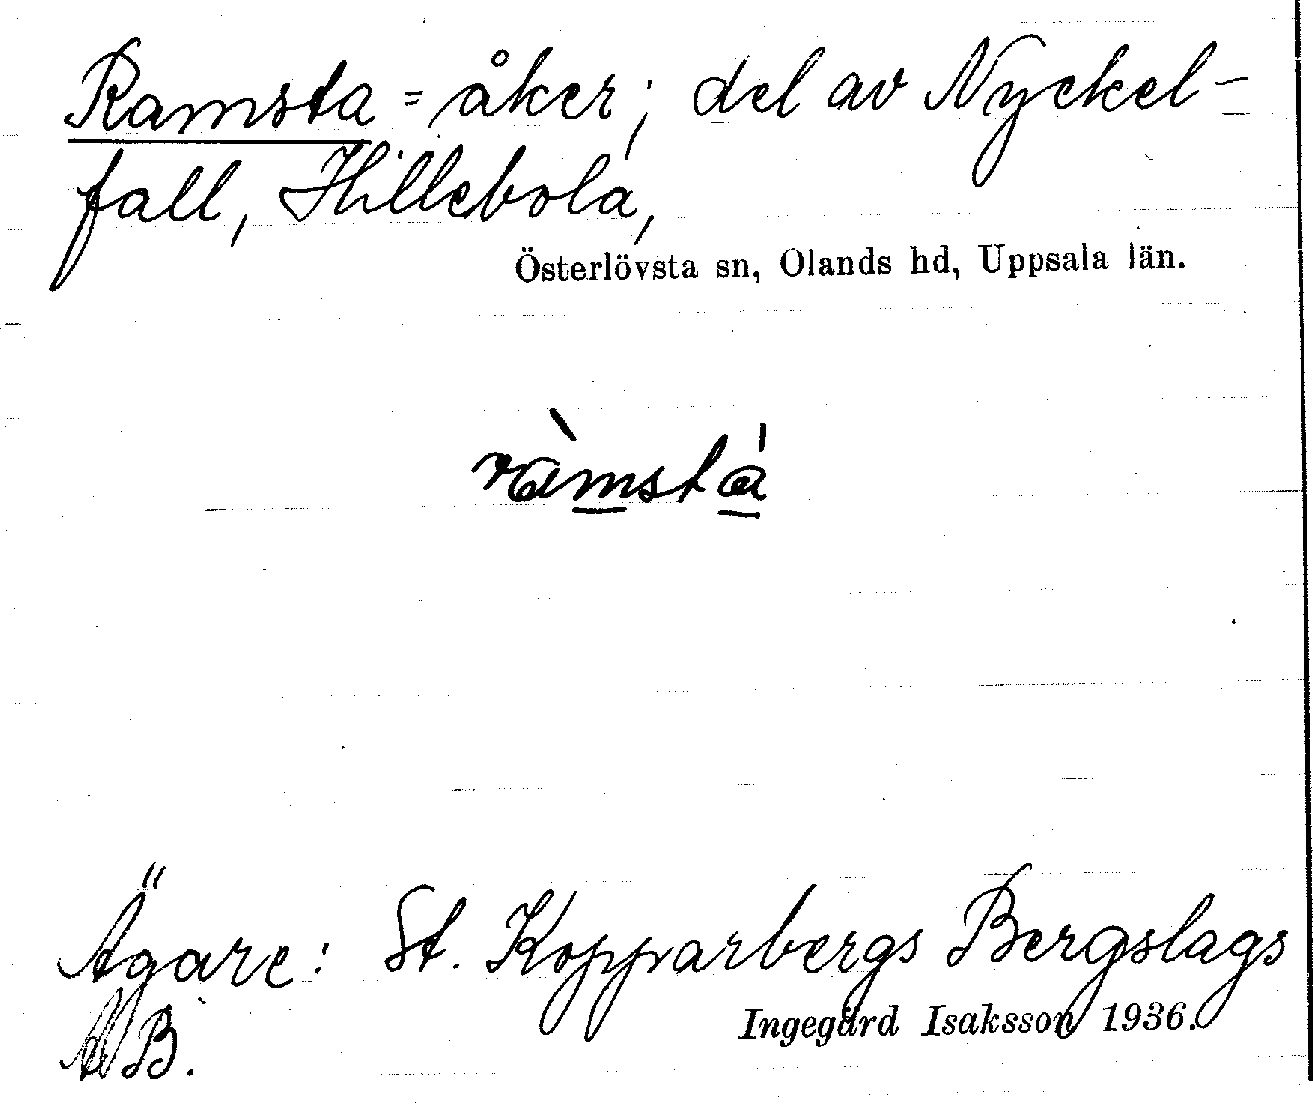 Ramsta = åker; del av Nyckel-
fall, Hillebola,
Österlövsta sn, Olands hd, Uppsala län.
ràmstá
Ägare: St. Kopparbergs Bergslags
AB.
Ingegärd Isaksson 1936.